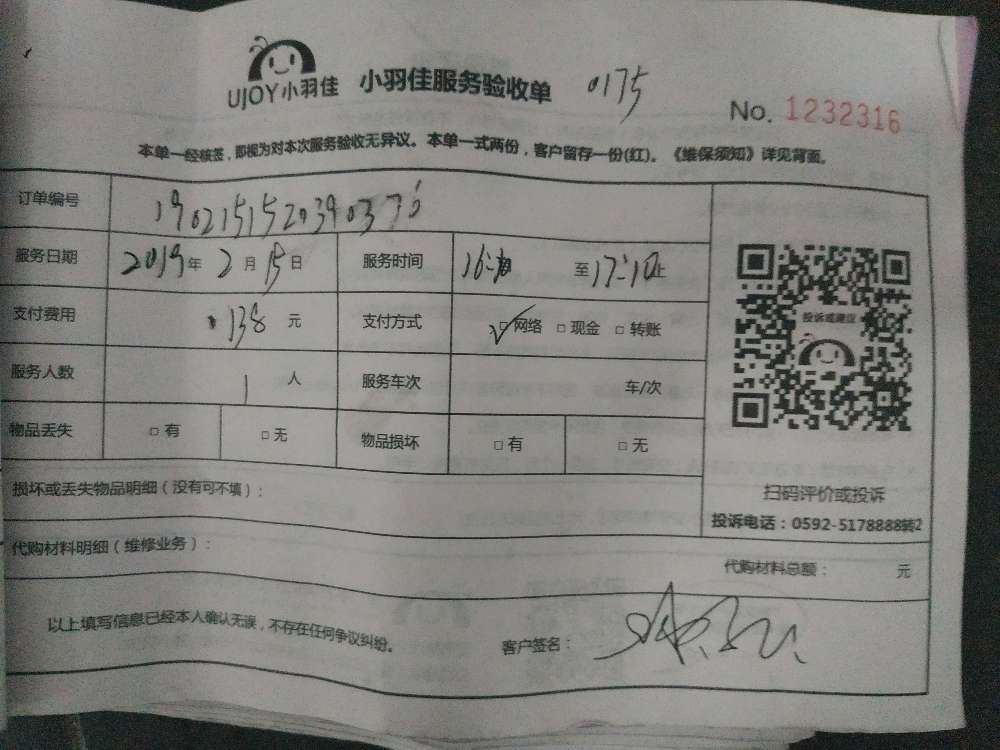 UJOY小羽佳 小羽佳服务验收单 0175
No. 1232316
本单一经核签，即视为对本次服务验收无异议。本单一式两份，客户留存一份(红)。《维保须知》详见背面。
订单编号 1902151520390376
服务日期 2019年2月15日 服务时间 16: 至17:10止
支付费用 138元 支付方式 □网络 □现金 □转账
投诉或建议
服务人数 1人 服务车次 车/次
物品丢失 □有 □无 物品损坏 □有 □无
损坏或丢失物品明细（没有可不填）：
扫码评价或投诉
投诉电话：0592-5178888转2
代购材料明细（维修业务）：
代购材料总额： 元
以上填写信息已经本人确认无误，不存在任何争议纠纷。
客户签名：